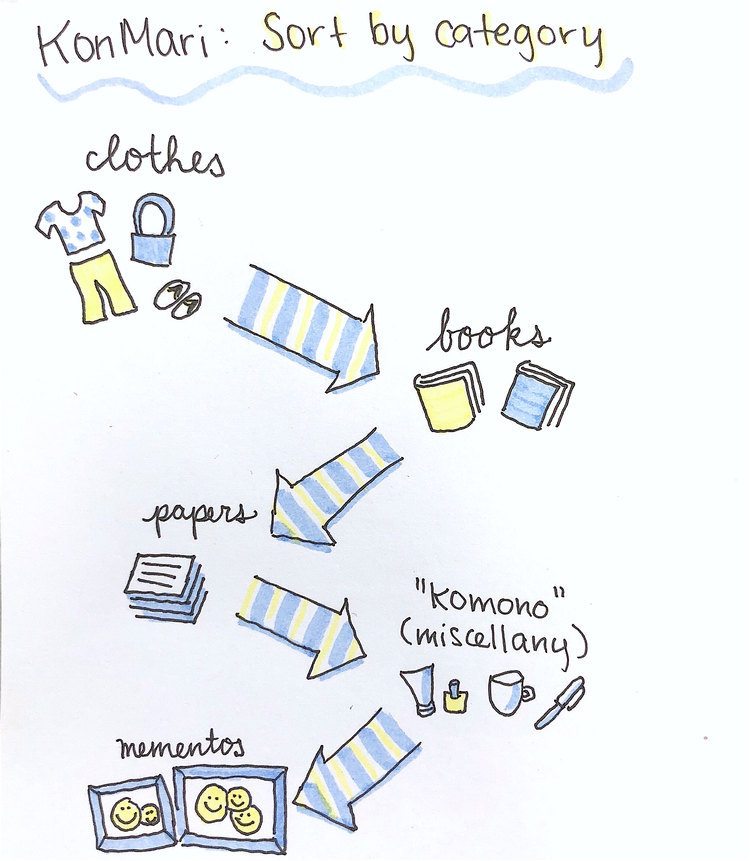 KonMari: Sort by category
clothes
books
papers
"Komono"
(miscellany)
mementos